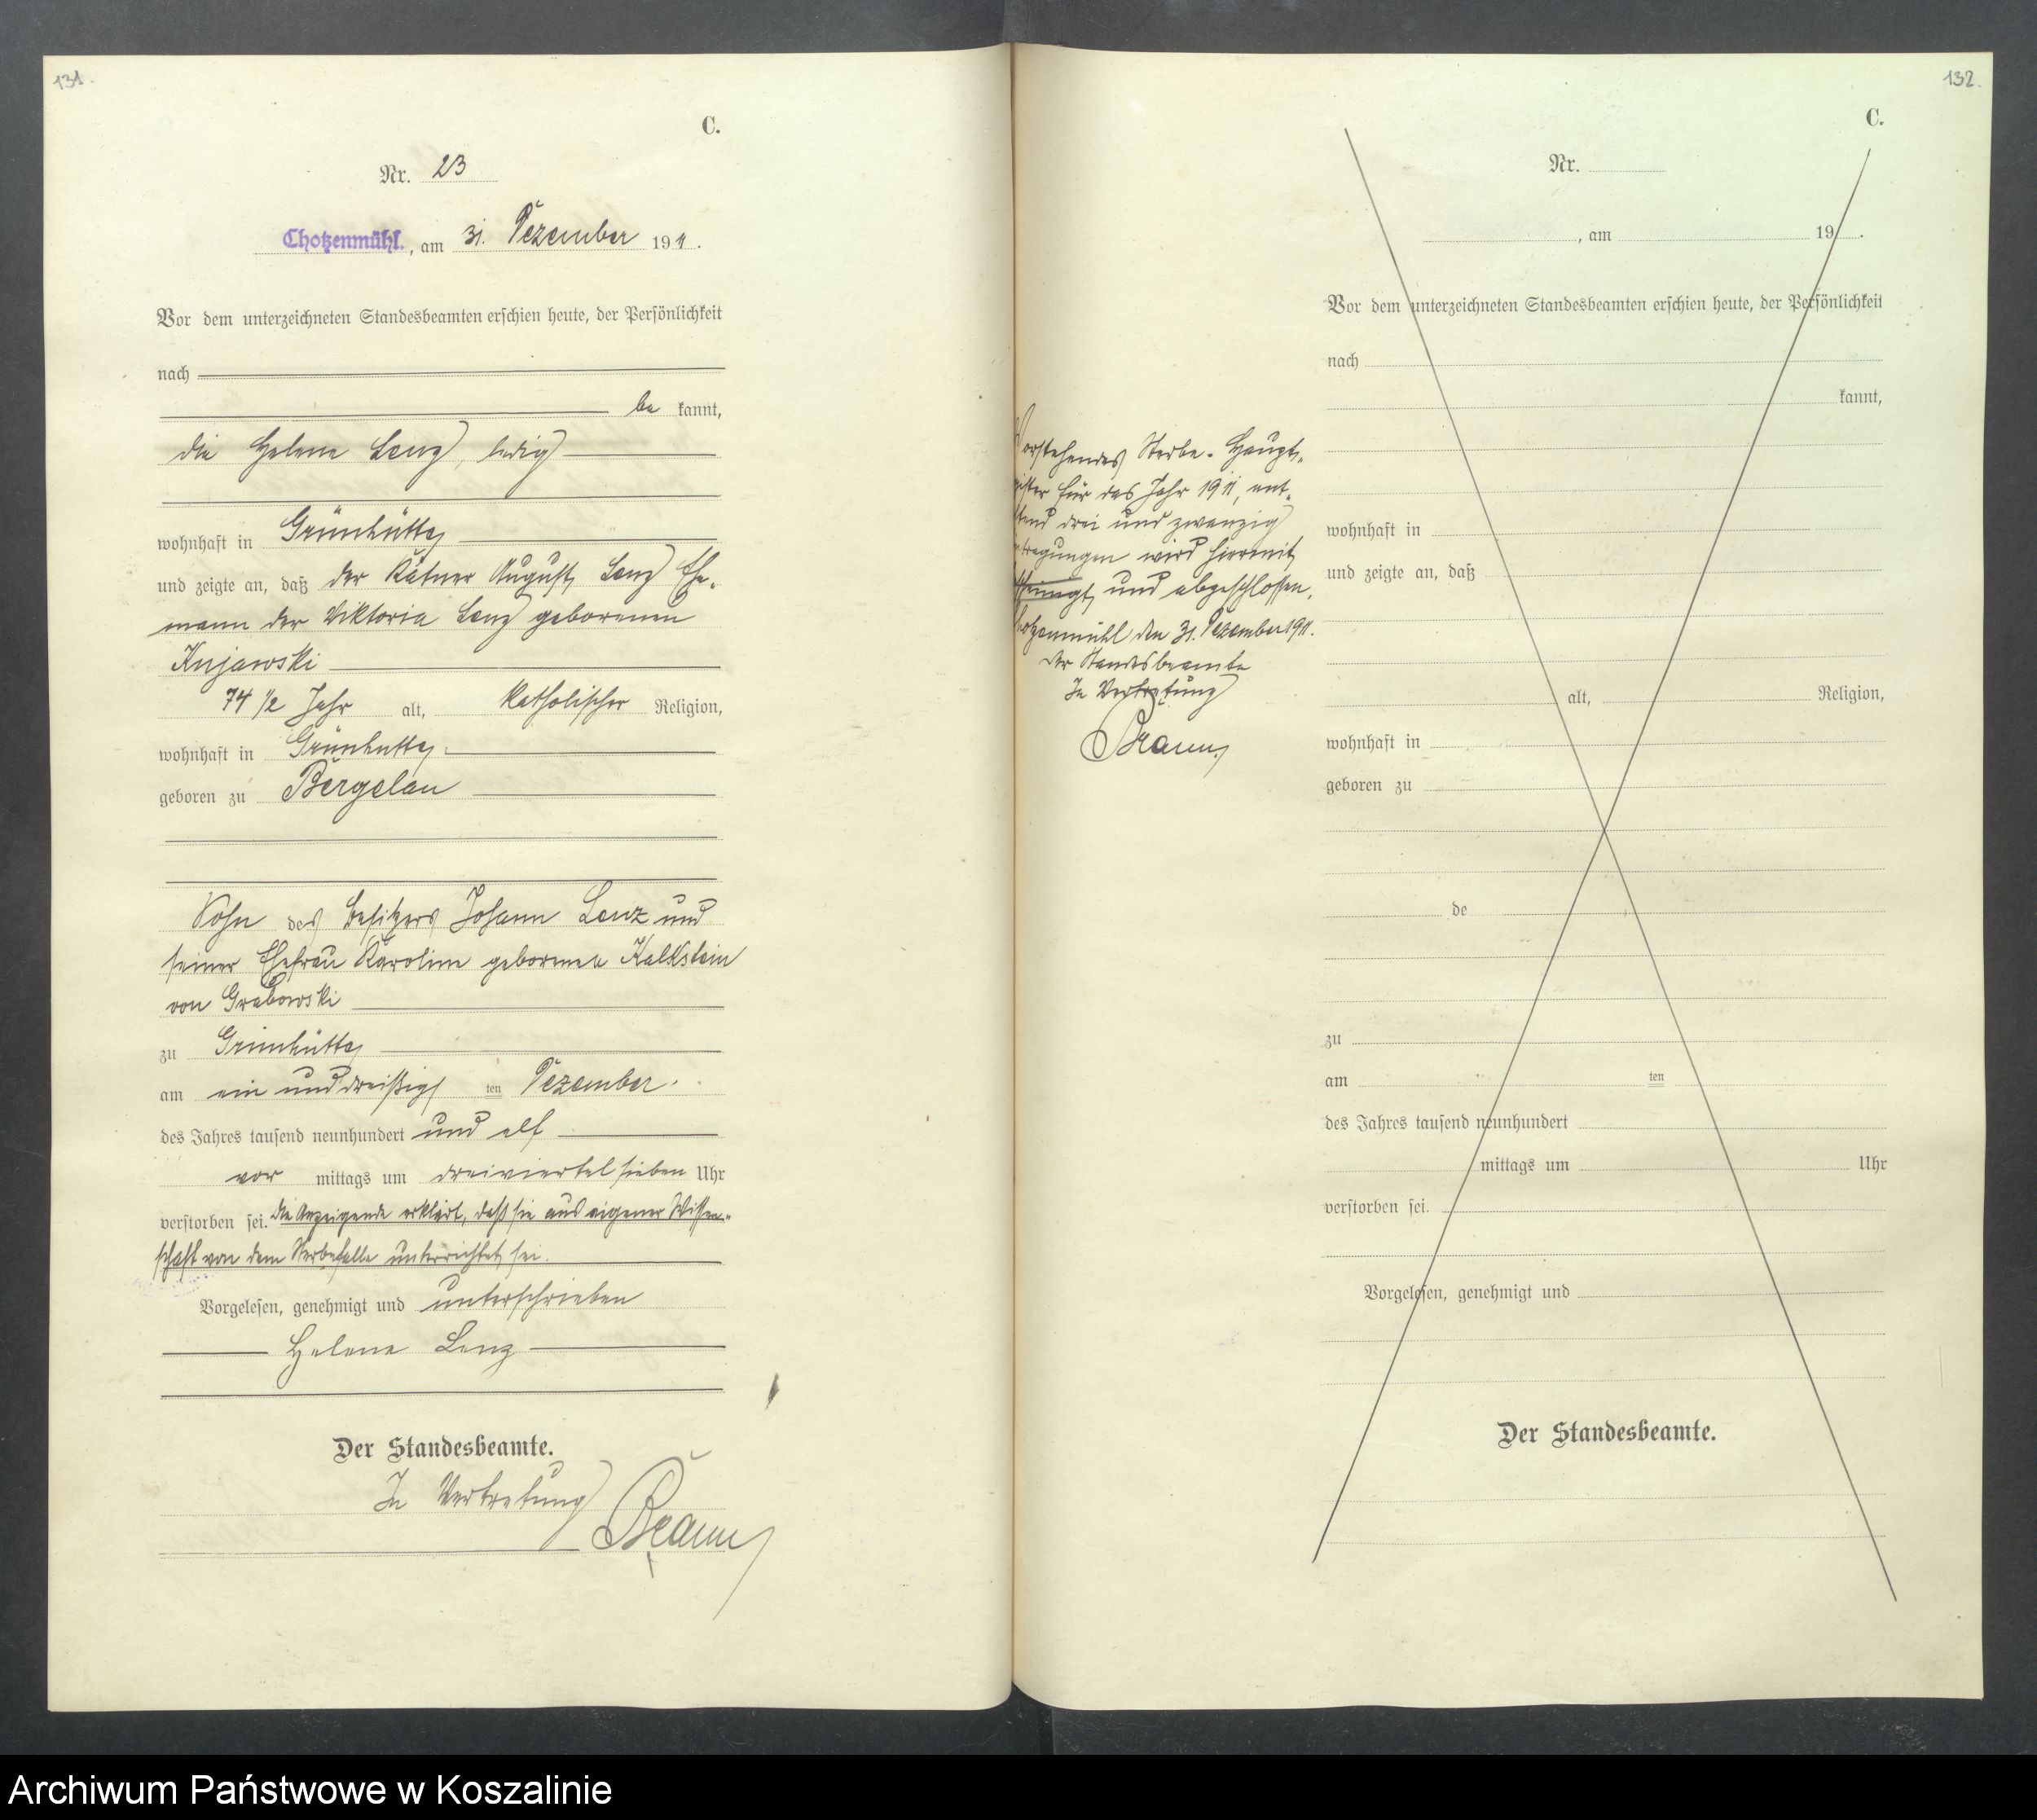 131.
C.
Nr. 23
Chotzenmühl., am 31. Dezember 1911.
Vor dem unterzeichneten Standesbeamten erschien heute, der Persönlichkeit
nach
be kannt,
die Helene Lenz, ledig
wohnhaft in Grünhütte
und zeigte an, daß der Kätner August Lenz Ehe-
mann der Viktoria Lenz geborenen
Kujawski
74 1/2 Jahr alt, katholischer Religion,
wohnhaft in Grünhütte
geboren zu Bergelau
Sohn des Besitzers Johann Lenz und
seiner Ehefrau Karoline geborenen Kalkstein
von Grabowski
zu Grünhütte
am ein und dreißigs ten Dezember
des Jahres tausend neunhundert und elf
vor mittags um dreiviertel sieben Uhr
verstorben sei. Die Anzeigende erklärt, daß sie aus eigener Wissen-
schaft von dem Sterbefalle unterrichtet sei.
Vorgelesen, genehmigt und unterschrieben
Helene Lenz
Der Standesbeamte.
In Vertretung
Braun
132.
C.
Nr.
, am 19 .
Vor dem unterzeichneten Standesbeamten erschien heute, der Persönlichkeit
nach
kannt,
wohnhaft in
und zeigte an, daß
alt, Religion,
wohnhaft in
geboren zu
de
zu
am ten
des Jahres tausend neunhundert
mittags um Uhr
verstorben sei.
Vorgelesen, genehmigt und
Der Standesbeamte.
Vorstehendes Sterbe-Haupt-
gister für das Jahr 1911, ent-
tend drei und zwanzig
tragungen wird hiermit
und abgeschlossen.
hotzenmühl den 31. Dezember 1911.
Der Standesbeamte
In Vertretung
Braun
Archiwum Państwowe w Koszalinie